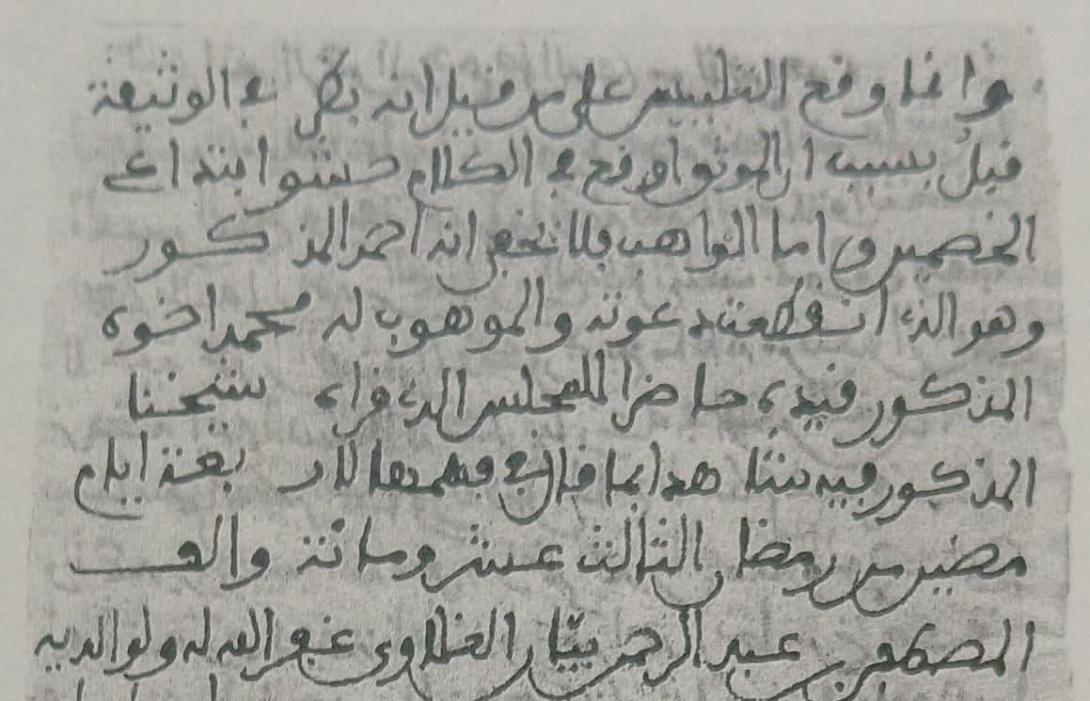 وانما وقع التلبيس على من قبل انه نظر في الوثيقة
قبل بسبب ان الموثق اوقع في الكلام حشوا
الخصمين واما الواهب فلا يخفى انه احمد المذكور
وهو الذي انقطعت دعوته والموهوب له محمد اخوه
المذكور قيده حاضرا للمجلس الذي قراه شيخنا
المذكور فيه بما ايام
مضين من رمضان الثالث عشر ومائة والف
المصطفى بن عبد الرحمن الغلاوي غفر الله له ولوالديه